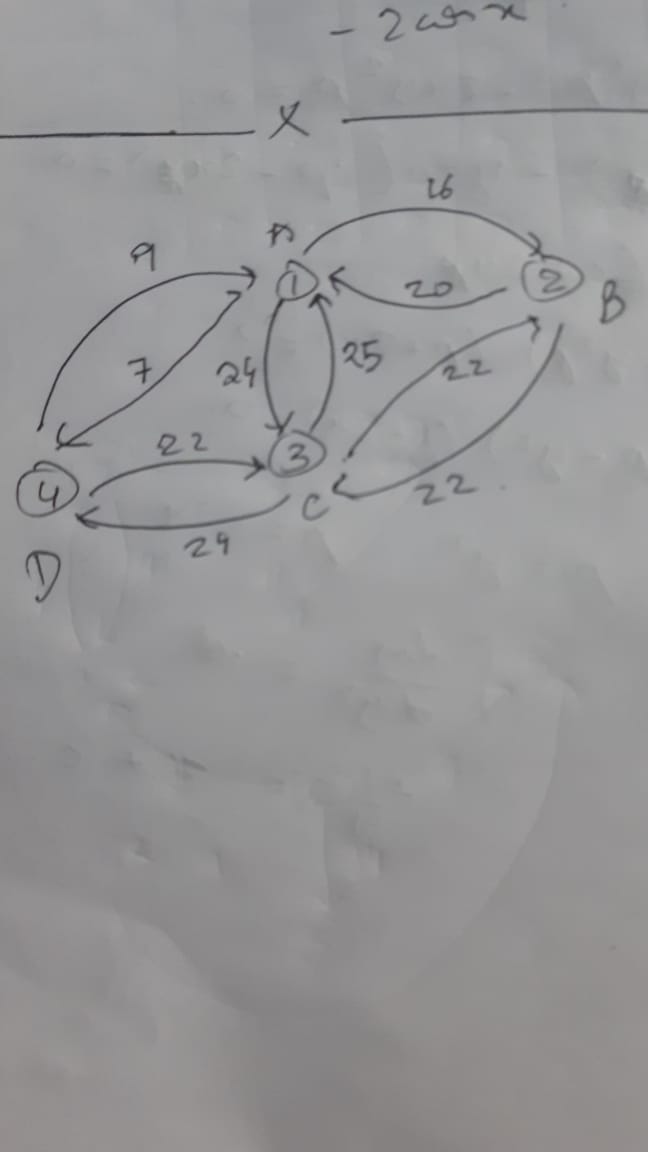 - 2 cos x
X
16
A
9
1
2
20
B
7
24
25
22
22
3
4
C
22
24
D